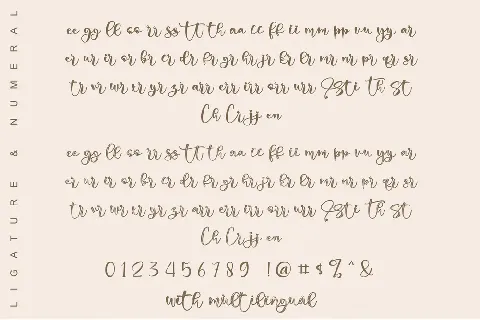 LIGATURE & NUMERAL
ee gg ll oo rr ss tt th aa cc ff ii mm pp vu yy ar
er ur ir or br cr dr fr gr hr jr kr lr mr nr pr qr sr
tr vr wr xr yr zr arr err irr orr urr Qsti th st
Ch Cr jj en
ee gg ll oo rr ss tt th aa cc ff ii mm pp vu yy ar
er ur ir or br cr dr fr gr hr jr kr lr mr nr pr qr sr
tr vr wr xr yr zr arr err irr orr urr Qsti th st
Ch Cr jj en
0 1 2 3 4 5 6 7 8 9 !@ # $ % ^ &
with multilingual